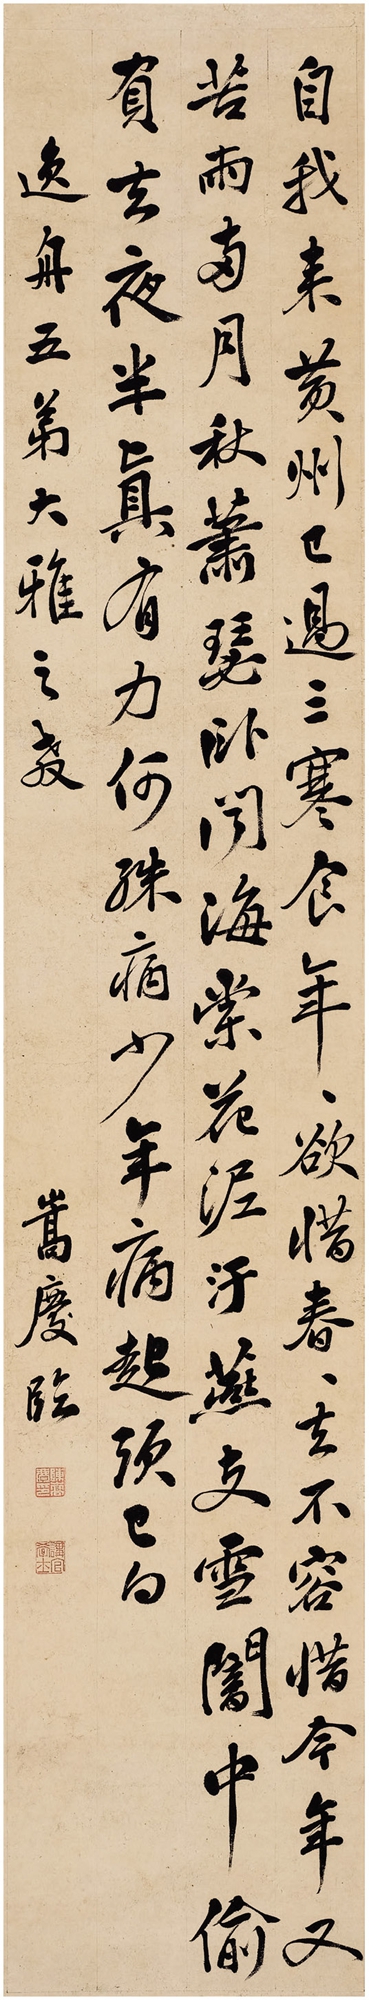 自我来黄州已過三寒食年、欲惜春、去不容惜今年又
苦雨两月秋蕭瑟卧闻海棠花泥汙燕支雪闇中偷
負去夜半真有力何殊病少年病起頭已白
逸舟五弟大雅之教
嵩慶臨